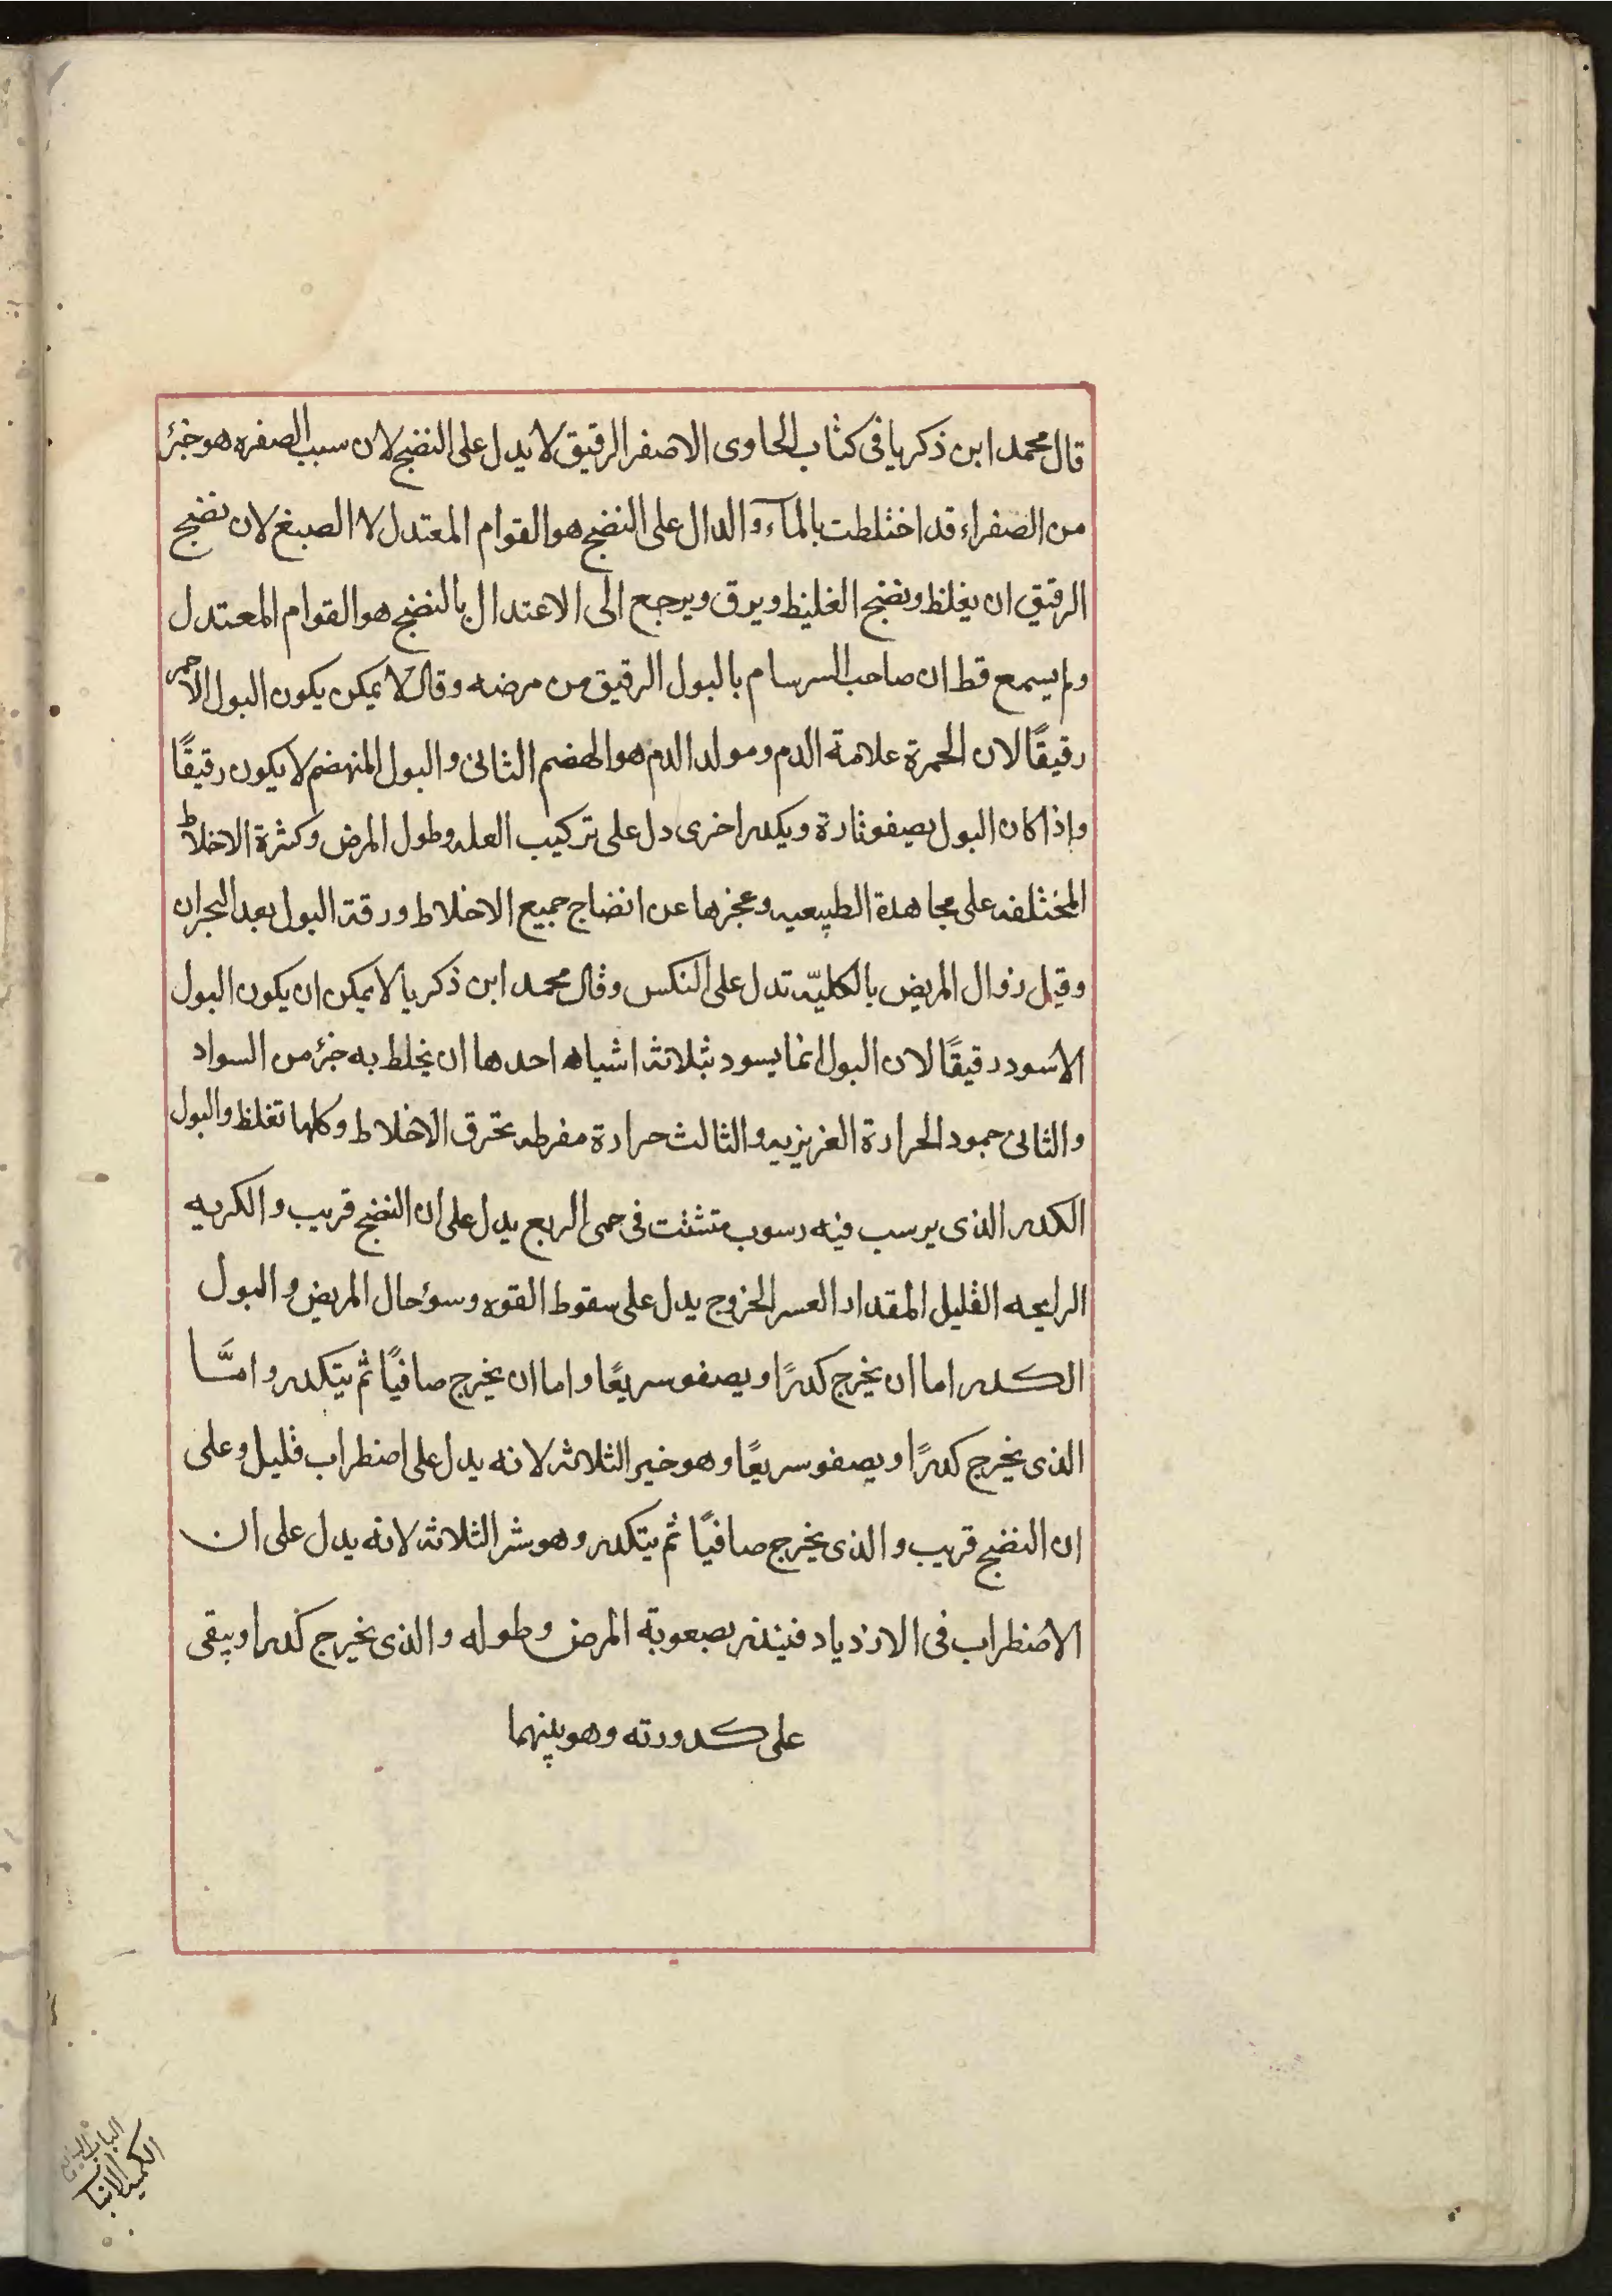 قال محمد ابن ذكريا فى كتاب الحاوى الاصفر الرقيق لا يدل على النضج لان سبب الصفره هو جزء
من الصفراء قد اختلطت بالمآء والدال على النضج هو القوام المعتدل لا الصبغ لان نضج
الرقيق ان يغلظ ونضج الغليظ ويرق ويرجع الى الاعتدال بالنضج هو القوام المعتدل
ولم يسمع قط ان صاحب السرسام بالبول الرقيق من مرضه وقال لا يمكن يكون البول الاحمر
رقيقًا لان الحمرة علامة الدم ومولد الدم هو الهضم الثانى والبول المنهضم لا يكون رقيقًا
واذا كان البول يصفو تارة ويكدر اخرى دل على تركيب العله وطول المرض وكثرة الاخلاط
المختلفه على مجاهدة الطبيعيه وعجزها عن انضاج جميع الاخلاط ورقة البول بعد البحران
وقيل زوال المريض بالكليّه تدل على النكس وقال محمد ابن ذكريا لا يمكن ان يكون البول
الاسود رقيقًا لان البول انما يسود بثلاثة اشياه احدها ان يخلط به جزء من السواد
والثانى جمود الحرارة الغريزيه والثالث حرارة مفرطه تحرق الاخلاط وكلها تغلظ والبول
الكدر الذى يرسب فيه رسوب متشتت فى حمى الربع يدل على ان النضج قريب والكريه
الرايحه القليل المقدار العسر الخروج يدل على سقوط القوه وسوء حال المريض والبول
الكدر اما ان يخرج كدرًا ويصفو سريعًا واما ان يخرج صافيًا ثم يتكدر وامَّا
الذى يخرج كدرًا ويصفو سريعًا وهو خير الثلاثه لانه يدل على اضطراب قليل وعلى
ان النضج قريب والذى يخرج صافيًا ثم يتكدر وهو شر الثلاثه لانه يدل على ان
الاضطراب فى الازدياد فينذر بصعوبة المرض وطوله والذى يخرج كدرا ويبقى
على كدورته وهو بينهما